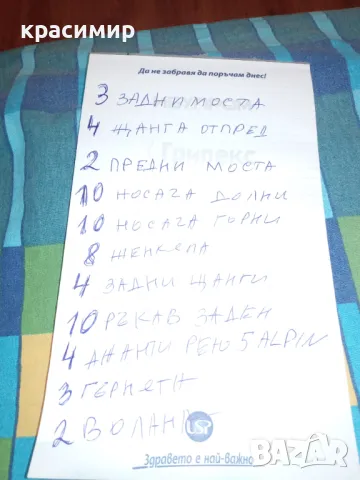 красимир
Да не забравя да поръчам днес!
3 ЗАДНИ МОСТА
4 ЩАНГА ОТПРЕД
2 ПРЕДНИ МОСТА
10 НОСАЧА ДОЛНИ
10 НОСАЧА ГОРНИ
8 ШЕНКЕЛА
4 ЗАДНИ ЩАНГИ
10 РЪКАВ ЗАДЕН
4 РЕНО 5 ALPIN
3
2 ВОЛАН
USP
Здравето е най-важно
BAZAR